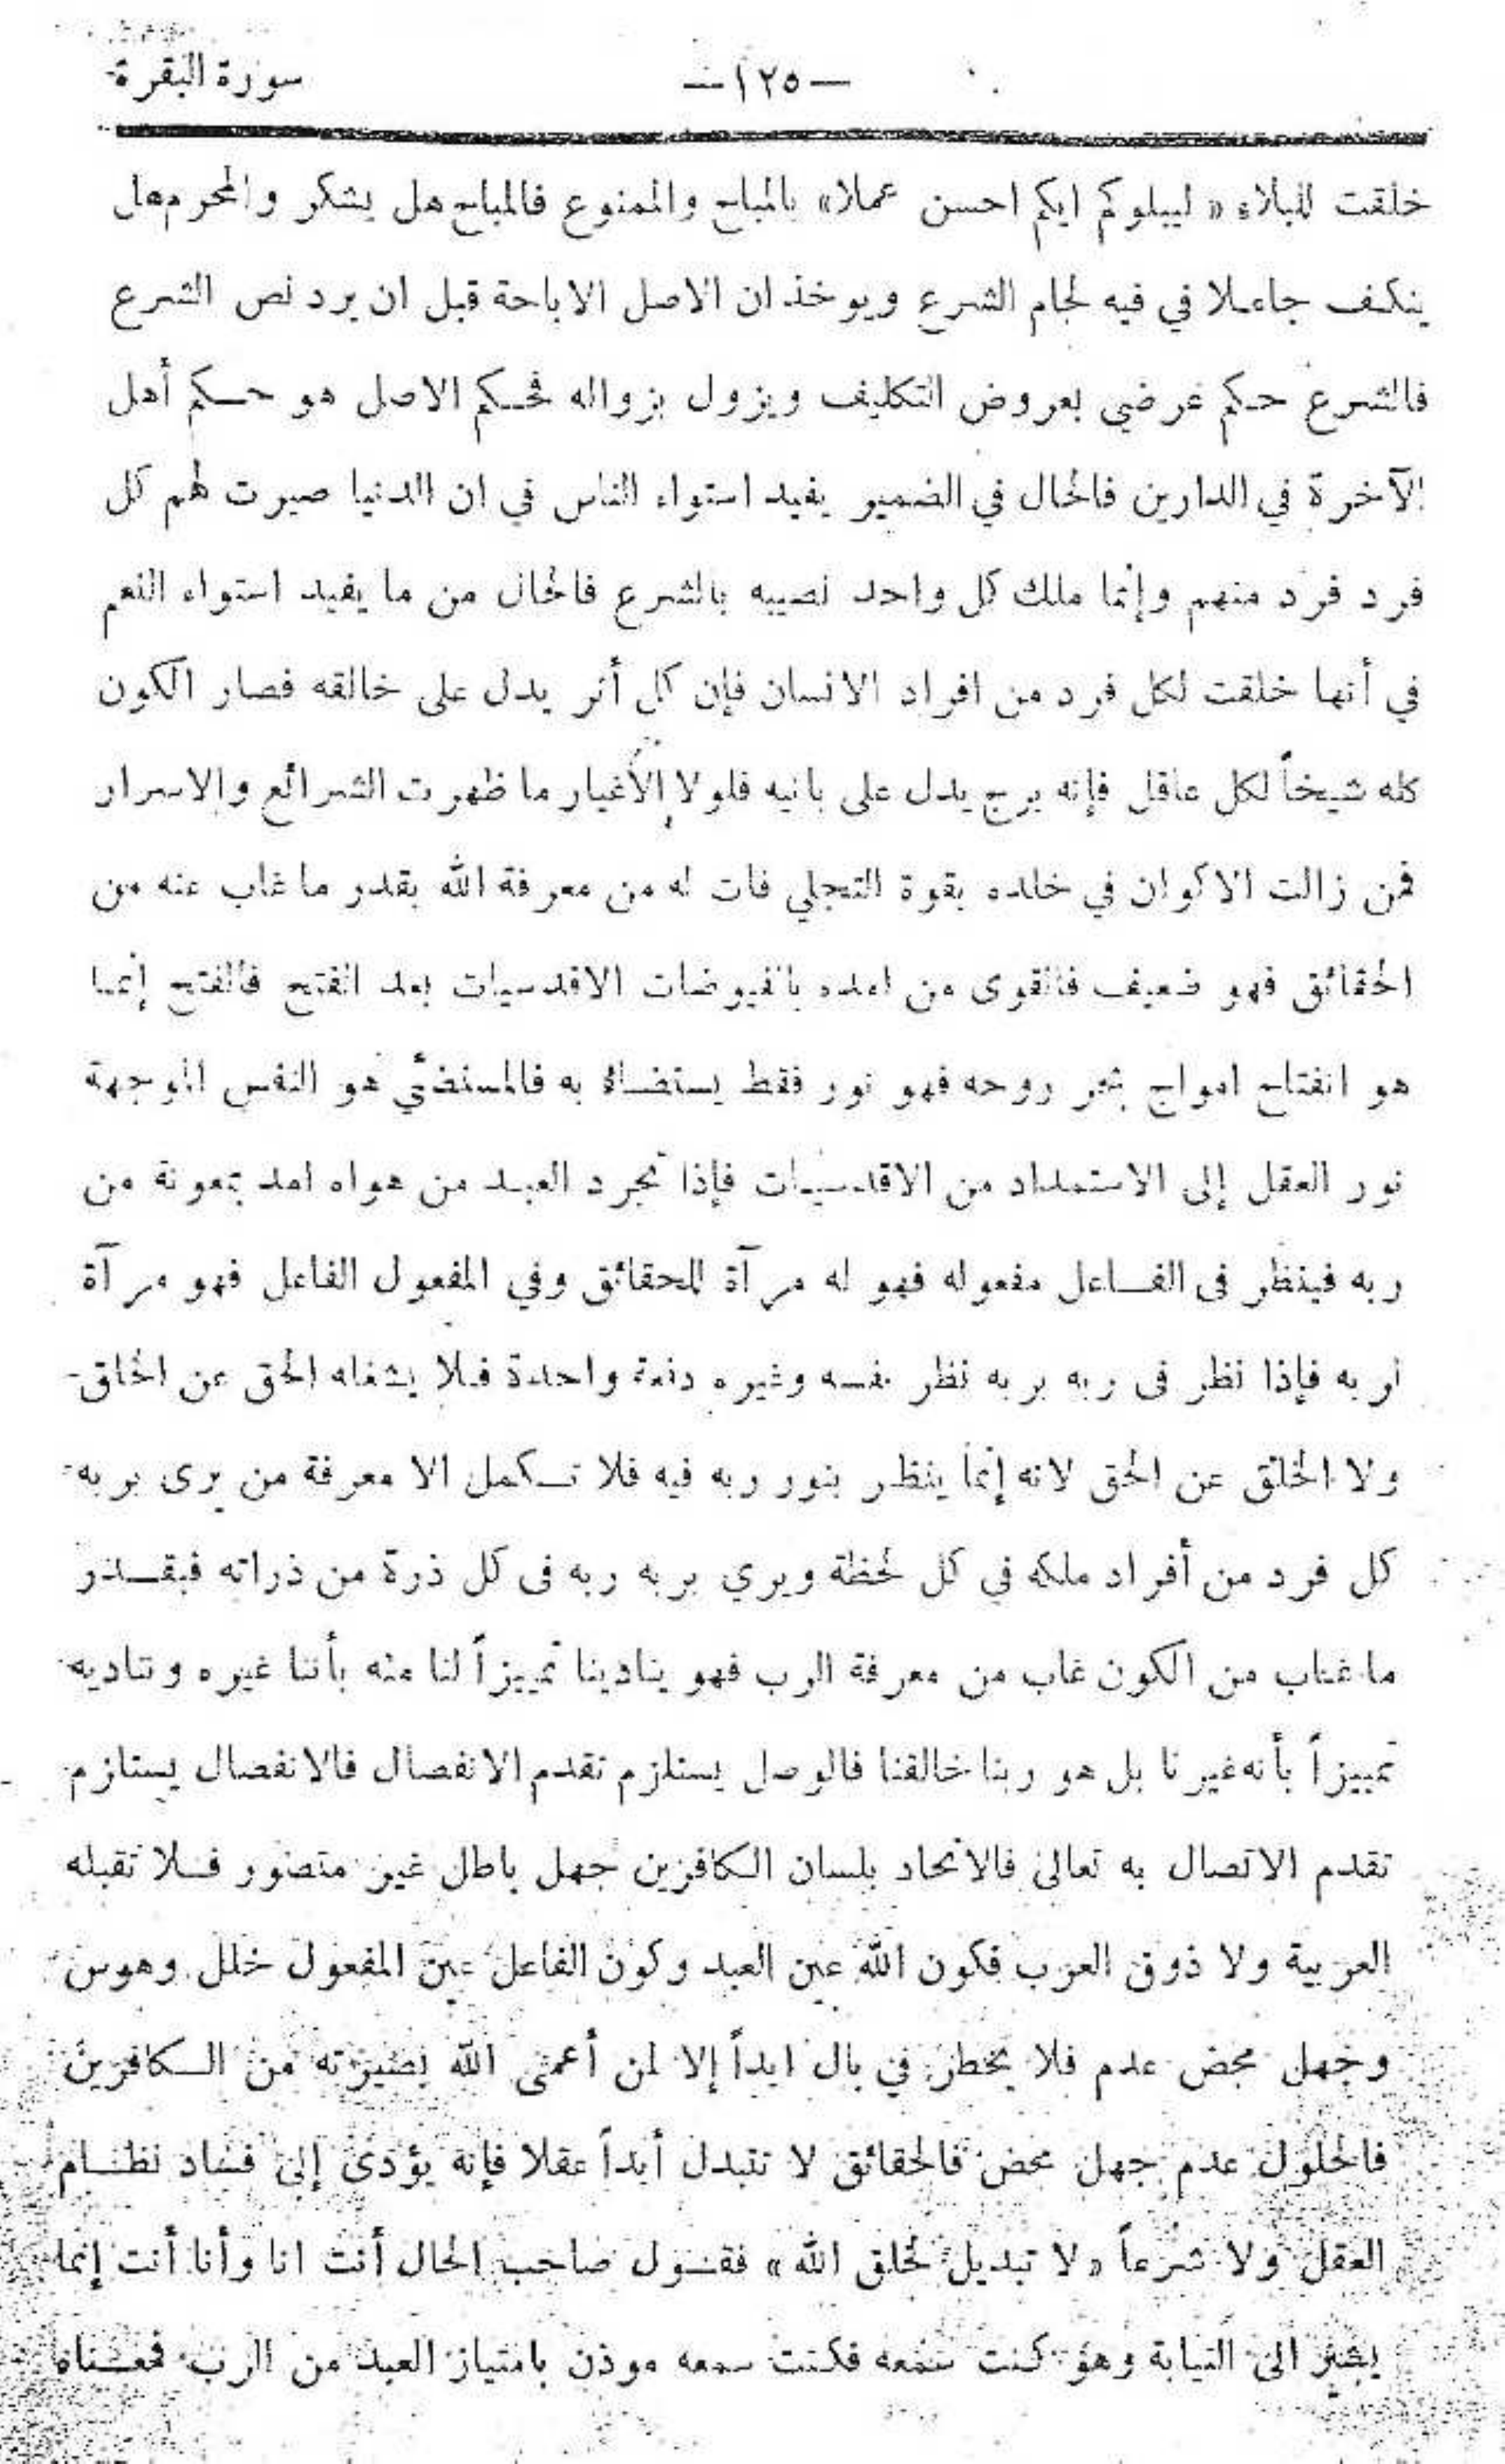 سورة البقرة
— ١٢٥ —
خلقت للبلاء « ليبلوكم ايكم احسن عملا» بالمباح والممنوع فالمباح هل يشكر والمحرم هل
ينكف جاعلا في فيه لجام الشرع ويوخذ ان الاصل الاباحة قبل ان يرد نص الشرع
فالشرع حكم عرضي بعروض التكليف ويزول بزواله فحكم الاصل هو حكم أهل
الآخرة في الدارين فالحال في الضمير يفيد استواء الناس في ان الدنيا صيرت لهم كل
فرد فرد منهم وإنما ملك كل واحد نصيبه بالشرع فالحال من ما يفيد استواء النعم
في أنها خلقت لكل فرد من افراد الانسان فإن كل أثر يدل على خالقه فصار الكون
كله شيخاً لكل عاقل فإنه برج يدل على بانيه فلولا الأغيار ما ظهرت الشرائع والاسرار
فمن زالت الاكوان في خلده بقوة التجلي فات له من معرفة الله بقدر ما غاب عنه من
الحقائق فهو ضعيف فالقوى من امده بالفيوضات الاقدسيات بعد الفتح فالفتح إنما
هو انفتاح امواج بحر روحه فهو نور فقط يستضاء به فالمستضئ هو النفس الموجهة
نور العقل إلى الاستمداد من الاقدسيات فإذا تجرد العبد من هواه امد بمعونة من
ربه فينظر فى الفاعل مفعوله فهو له مرآة للحقائق وفي المفعول الفاعل فهو مرآة
لربه فإذا نظر فى ربه بربه نظر نفسه وغيره دفعة واحدة فلا يشغله الحق عن الخلق
ولا الخلق عن الحق لانه إنما ينظر بنور ربه فيه فلا تكمل الا معرفة من يرى بربه
كل فرد من أفراد ملكه في كل لحظة ويري بربه ربه فى كل ذرة من ذراته فبقدر
ما غاب من الكون غاب من معرفة الرب فهو ينادينا تمييزاً لنا منه بأننا غيره وتناديه
تمييزاً بأنه غيرنا بل هو ربنا خالقنا فالوصل يستلزم تقدم الانفصال فالانفصال يستلزم
تقدم الاتصال به تعالى فالاتحاد بلسان الكافرين جهل باطل غير متصور فلا تقبله
العربية ولا ذوق العرب فكون الله عين العبد وكون الفاعل عين المفعول خلل وهوس
وجهل محض عدم فلا يخطر في بال ابداً إلا لمن أعمى الله بصيرته من الكافرين
فالحلول عدم جهل محض فالحقائق لا تتبدل أبداً عقلا فإنه يؤدى إلى فساد نظام
العقل ولا شرعاً « لا تبديل لخلق الله » فقول صاحب الحال أنت انا وأنا أنت إنما
يشير الى النيابة وهو كنت سمعه فكنت سمعه موذن بامتياز العبد من الرب فمعناه